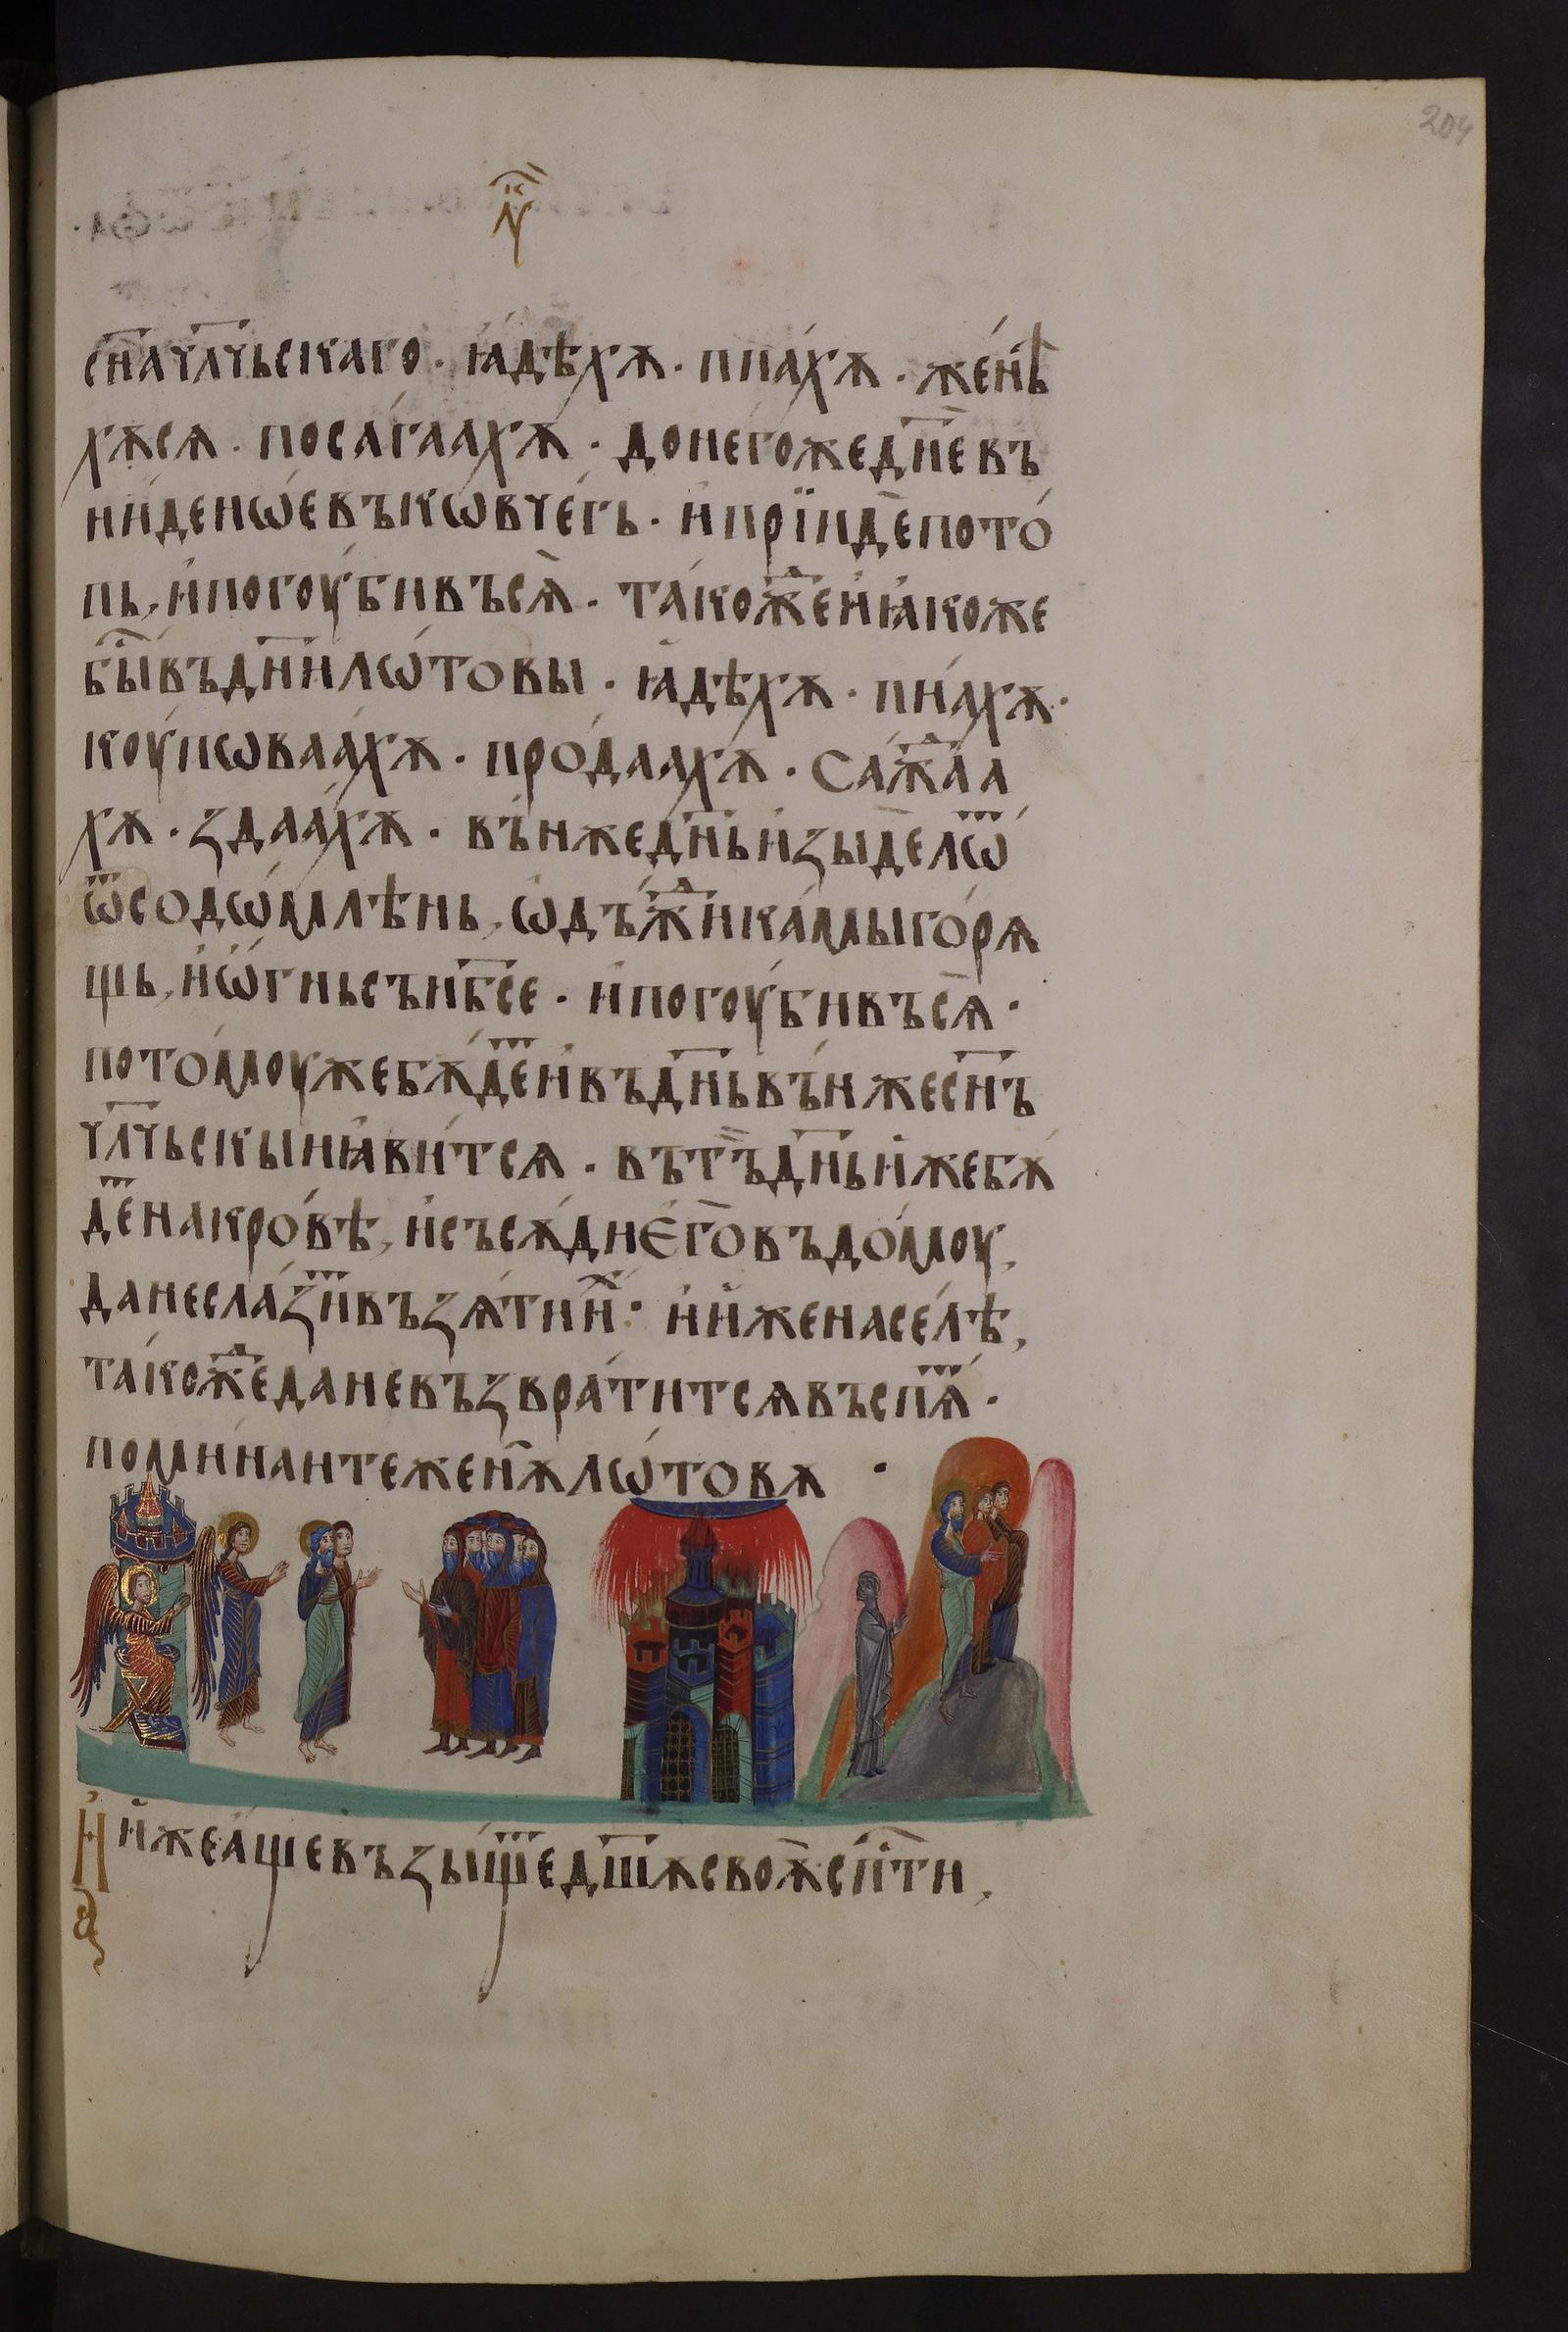 204
сн҃ачл҃чьскаго · ꙗ҆дѣхѫ · пиа́хѫ · же́нѣ
хѫсѧ · посага́ахѫ · донегожедн҃евъ
ни́денѡ́евъкѡвче́гь · и҆прїиде̄пото́
пь, и҆погоу́бивъсѧ̀ · та́коже҃и҆ꙗ҆коже
бы҃въдн҃и́лѡ́товы · ꙗ҆дѣхѫ · пиа́хѫ ·
коу́пѡваа́хѫ · про́даахѫ · сажⷣа́а
хѫ · ꙁдаа́хѫ · въ́нжедн҃ьи҆ꙁы́делѡⷮ
ѿсодѡ́млѣнь, ѡ҆дъ́жⷣикамыго́рѧ
щь, и҆ѡ҆́гньсън҃бсе · и҆погоу́бивъсѧ̀ ·
пото́моужебѫ́деⷮи҆въдн҃ьвъ́нжесн҃ъ
чл҃чьскыиꙗ҆ви́тсѧ · вътъ̏дн҃ьи҆жебѫ́
деⷮнакро́вѣ, и҆съсѫ́диє҆го̀въдо́моу,
данесла́ꙁиⷮвъꙁѧ́тииⷯ: и҆и҆женасе́лѣ,
та́кожⷣеданевъꙁвра́титсѧвъспѧⷮ́ ·
поми́наитежен̀ѫлѡ́товѫ ·
И҆и҆жеа́щевъꙁы́щеⷮдш҃ѫсвоѫ̀сп҃сти,